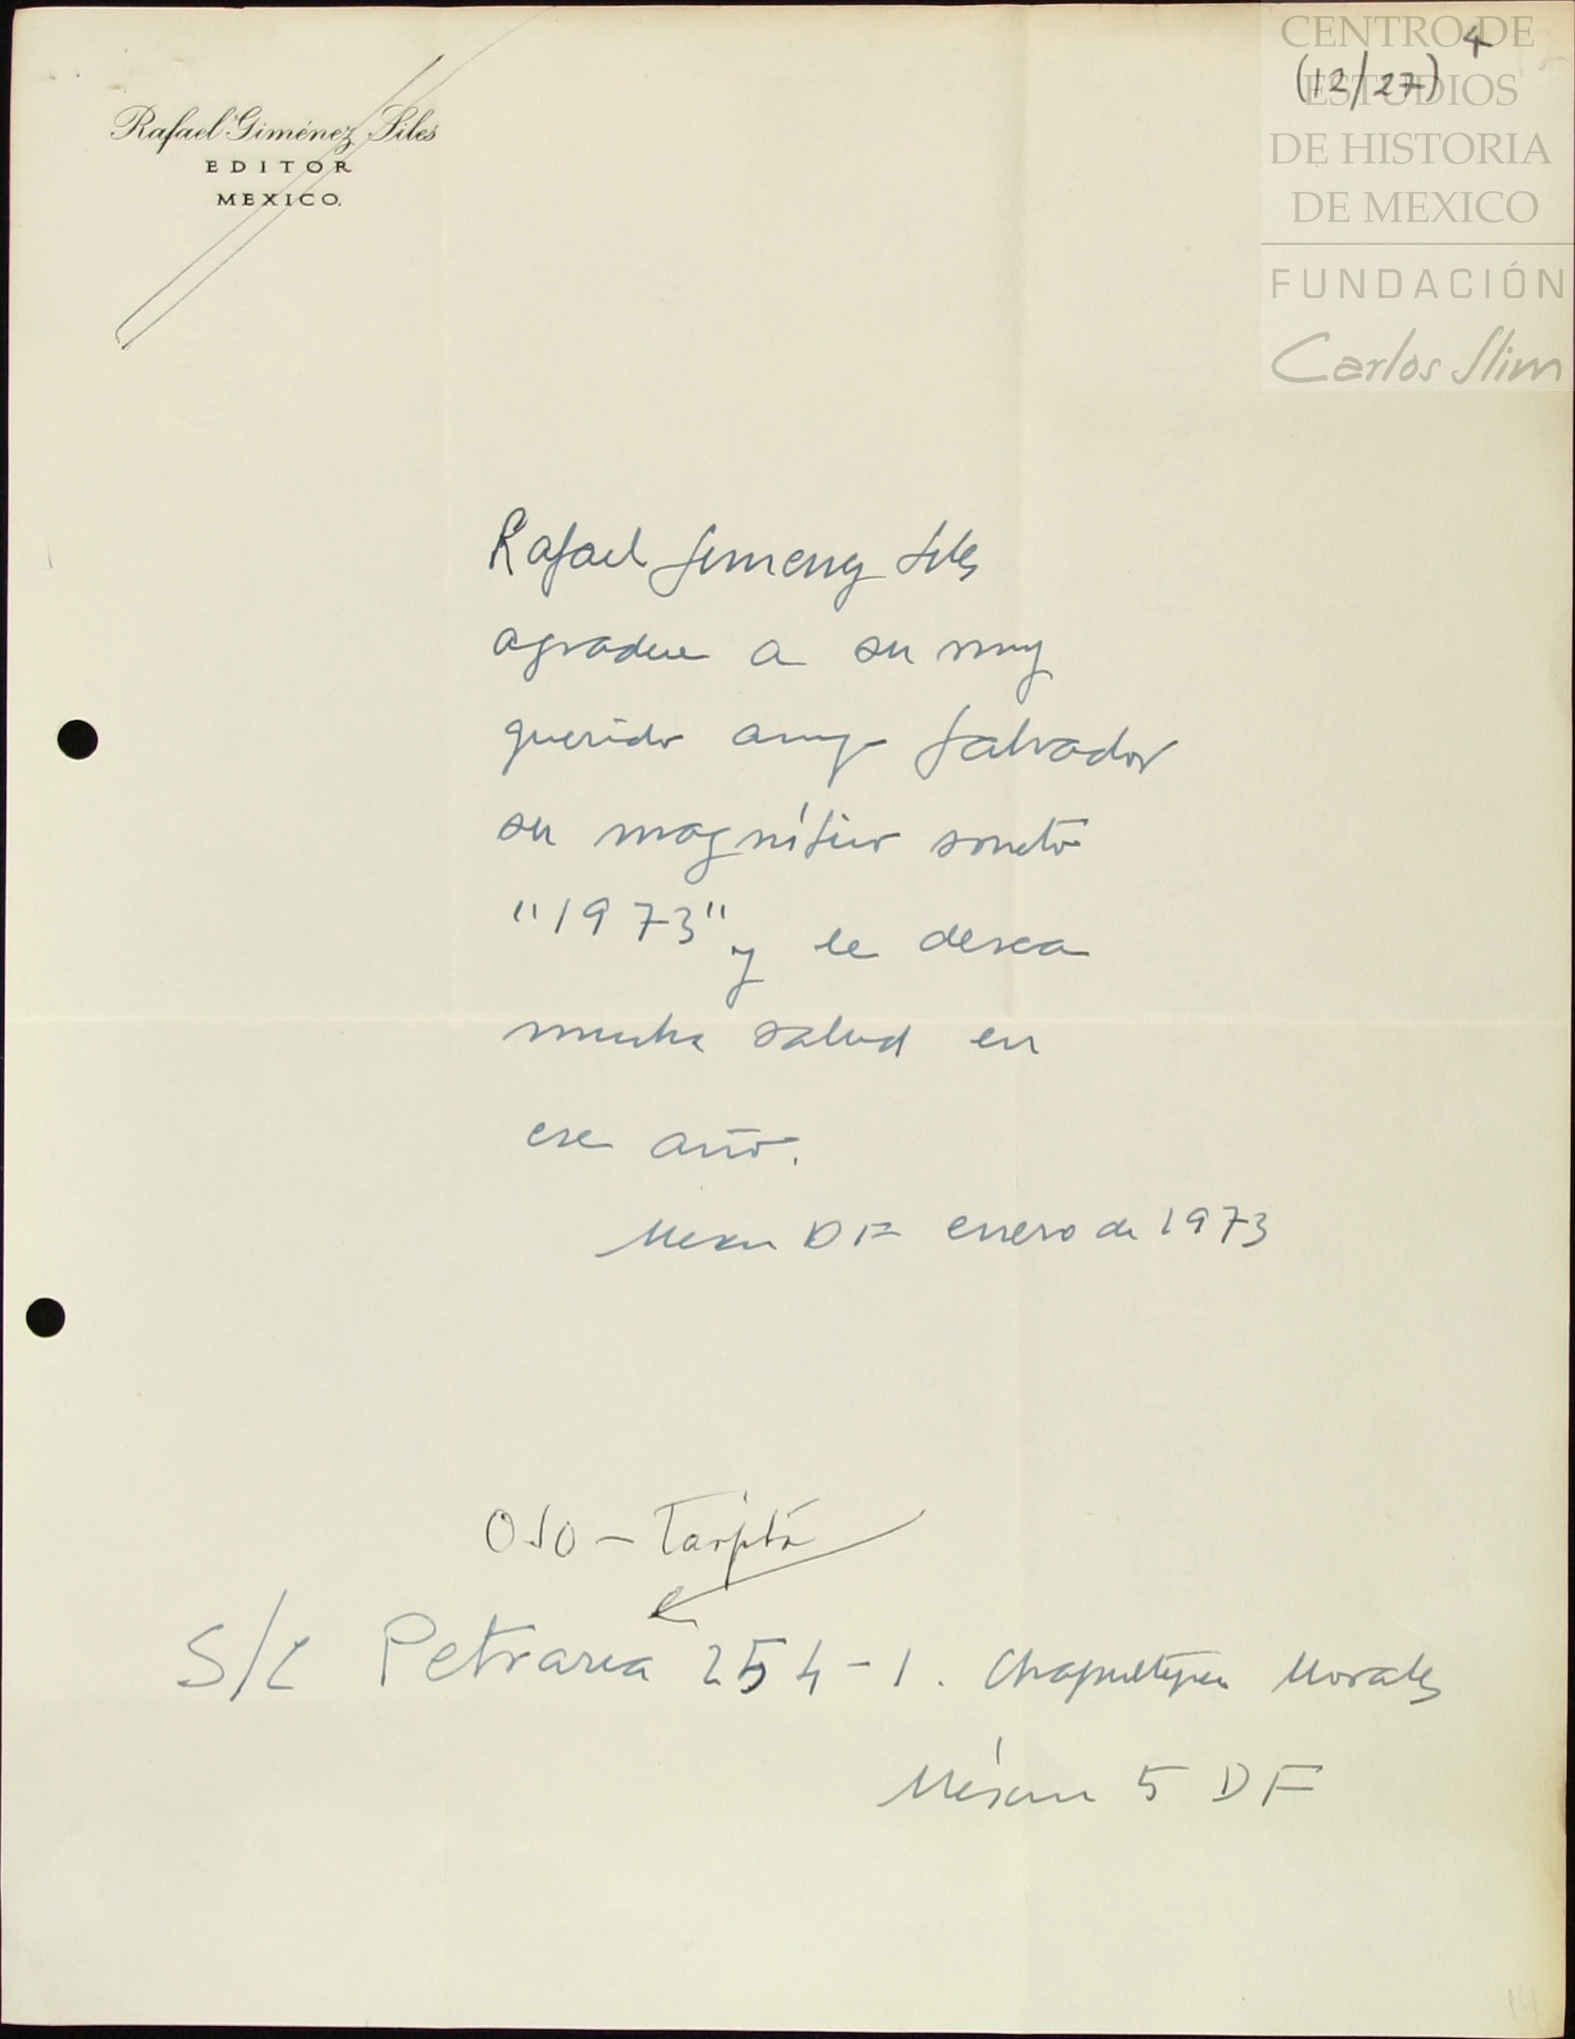 CENTRO DE
ESTUDIOS
DE HISTORIA
DE MEXICO
FUNDACIÓN
Carlos Slim
4
(12/27)
Rafael Giménez Siles
EDITOR
MEXICO.
Rafael Gimenez Siles
agradece a su muy
querido amigo Salvador
su magnífico soneto
"1973" y le desea
mucha salud en
ese año.
Mexico DF enero de 1973
OJO - Tarjeta
S/C Petrarca 254-1. Chapultepec Morales
México 5 DF